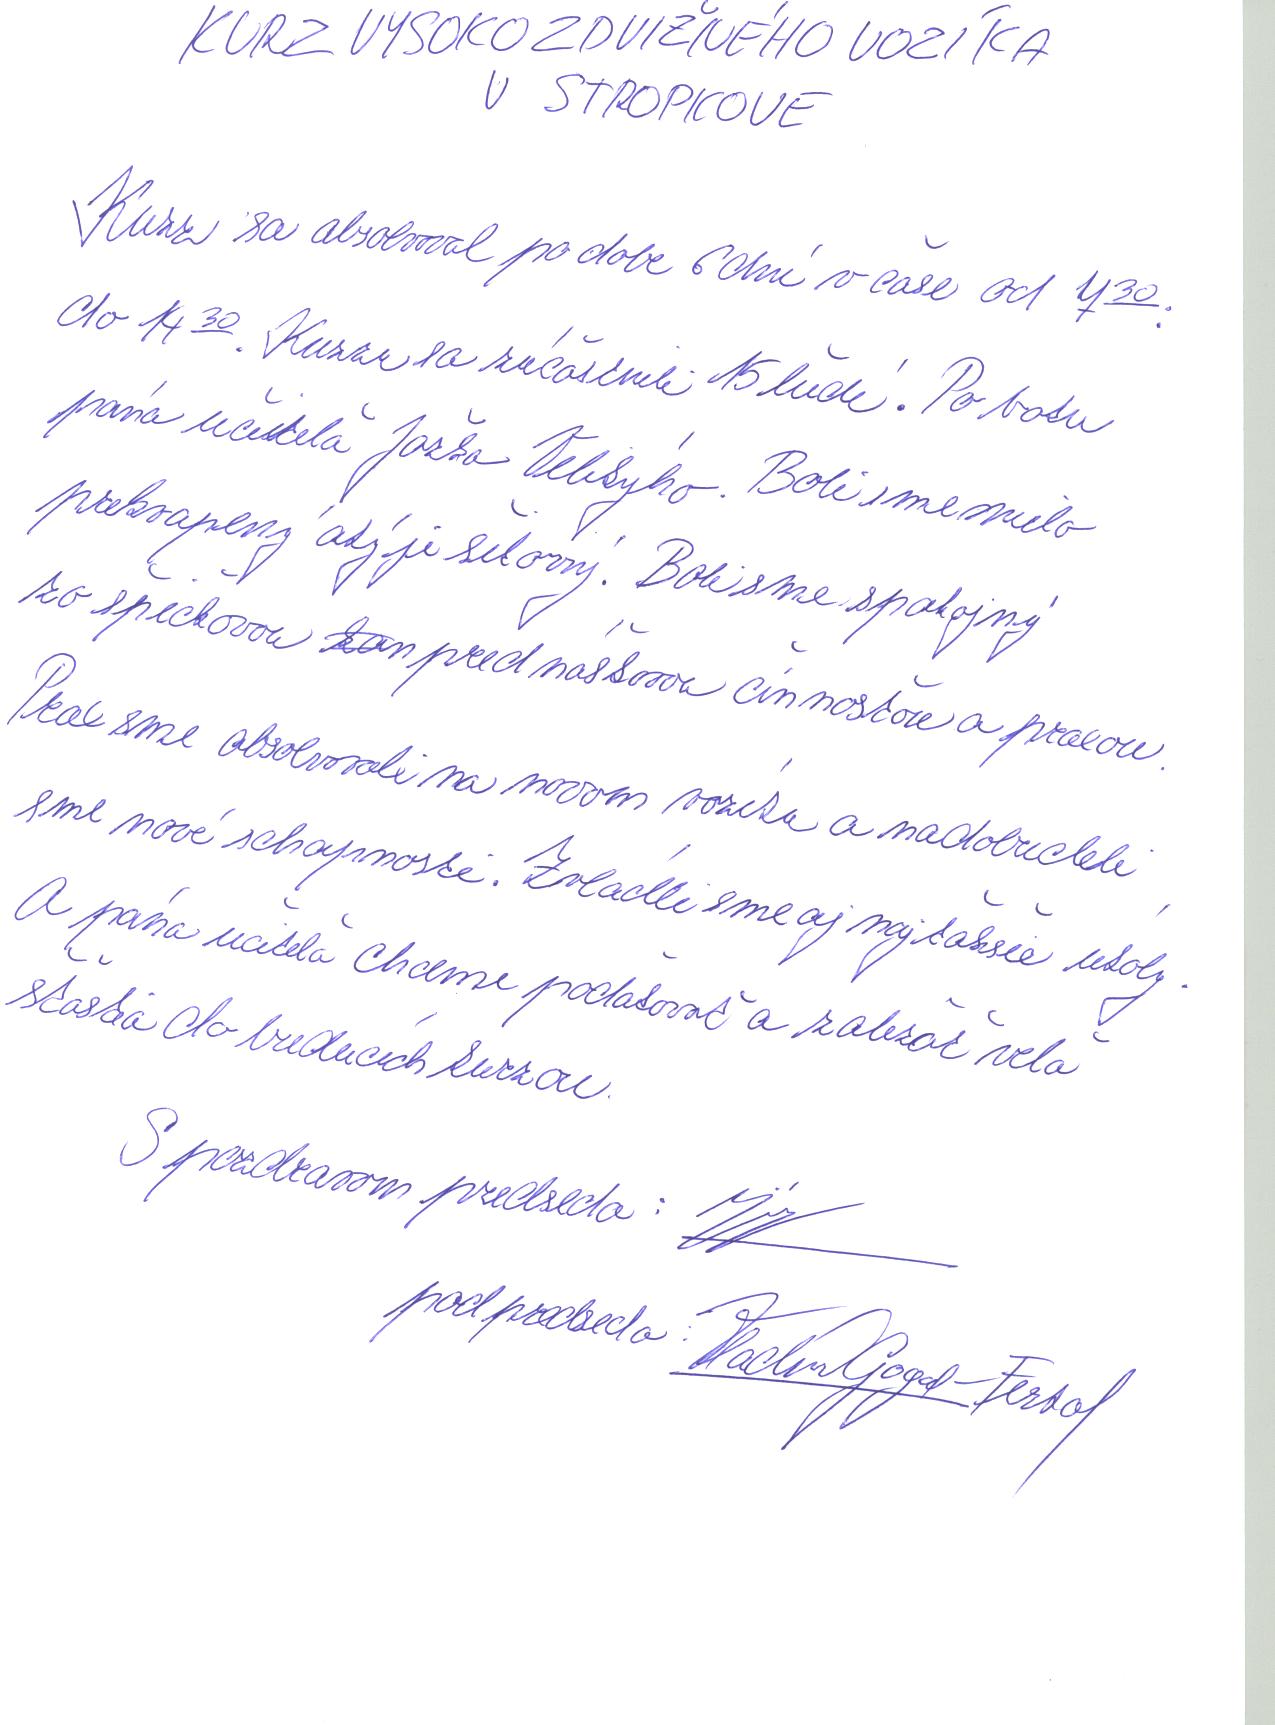 KURZ VYSOKOZDVIŽNÉHO VOZÍKA
V STROPKOVE
Kurz sa absolvoval po dobe 6 dní v čase od 7 30.
do 14 30. Kurzu sa zúčastnili 15 ľudí. Po boku
pána učiteľa Jožka Velikýho. Boli sme milo
prekvapený aký je šikovný. Boli sme spokojný
zo špičkovou prednáškovou činnosťou a pracou.
Prax sme absolvovali na novom vozíku a nadobudli
sme nové schopnosti. Zvládli sme aj najťašsie úkoly.
A pána učiteľa chceme poďakovať a zaležať veľa
šťastia do budúcich kurzou.
S pozdravom predseda :
podpredseda :